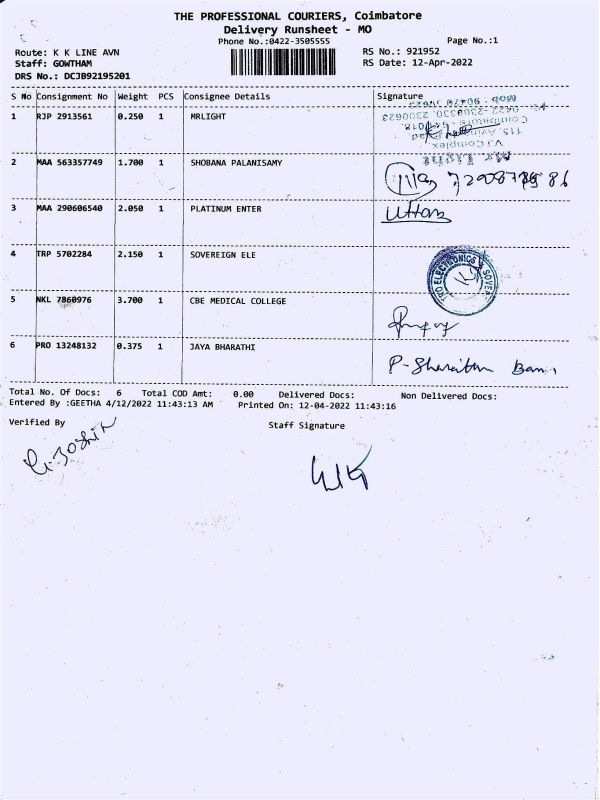 THE PROFESSIONAL COURIERS, Coimbatore
Delivery Runsheet - MO
Phone No.:0422-3505555
Page No.:1
Route: K K LINE AVN
RS No.: 921952
Staff: GOWTHAM
RS Date: 12-Apr-2022
DRS No.: DCJB92195201
S No Consignment No Weight PCS Consignee Details Signature
1 RJP 2913561 0.250 1 MRLIGHT
Mr Light
V.J Complex,
2 MAA 563357749 1.700 1 SHOBANA PALANISAMY
3 MAA 290606540 2.050 1 PLATINUM ENTER
4 TRP 5702284 2.150 1 SOVEREIGN ELE
5 NKL 7860976 3.700 1 CBE MEDICAL COLLEGE
6 PRO 13248132 0.375 1 JAYA BHARATHI
Total No. Of Docs: 6 Total COD Amt: 0.00 Delivered Docs: Non Delivered Docs:
Entered By :GEETHA 4/12/2022 11:43:13 AM Printed On: 12-04-2022 11:43:16
Verified By
Staff Signature